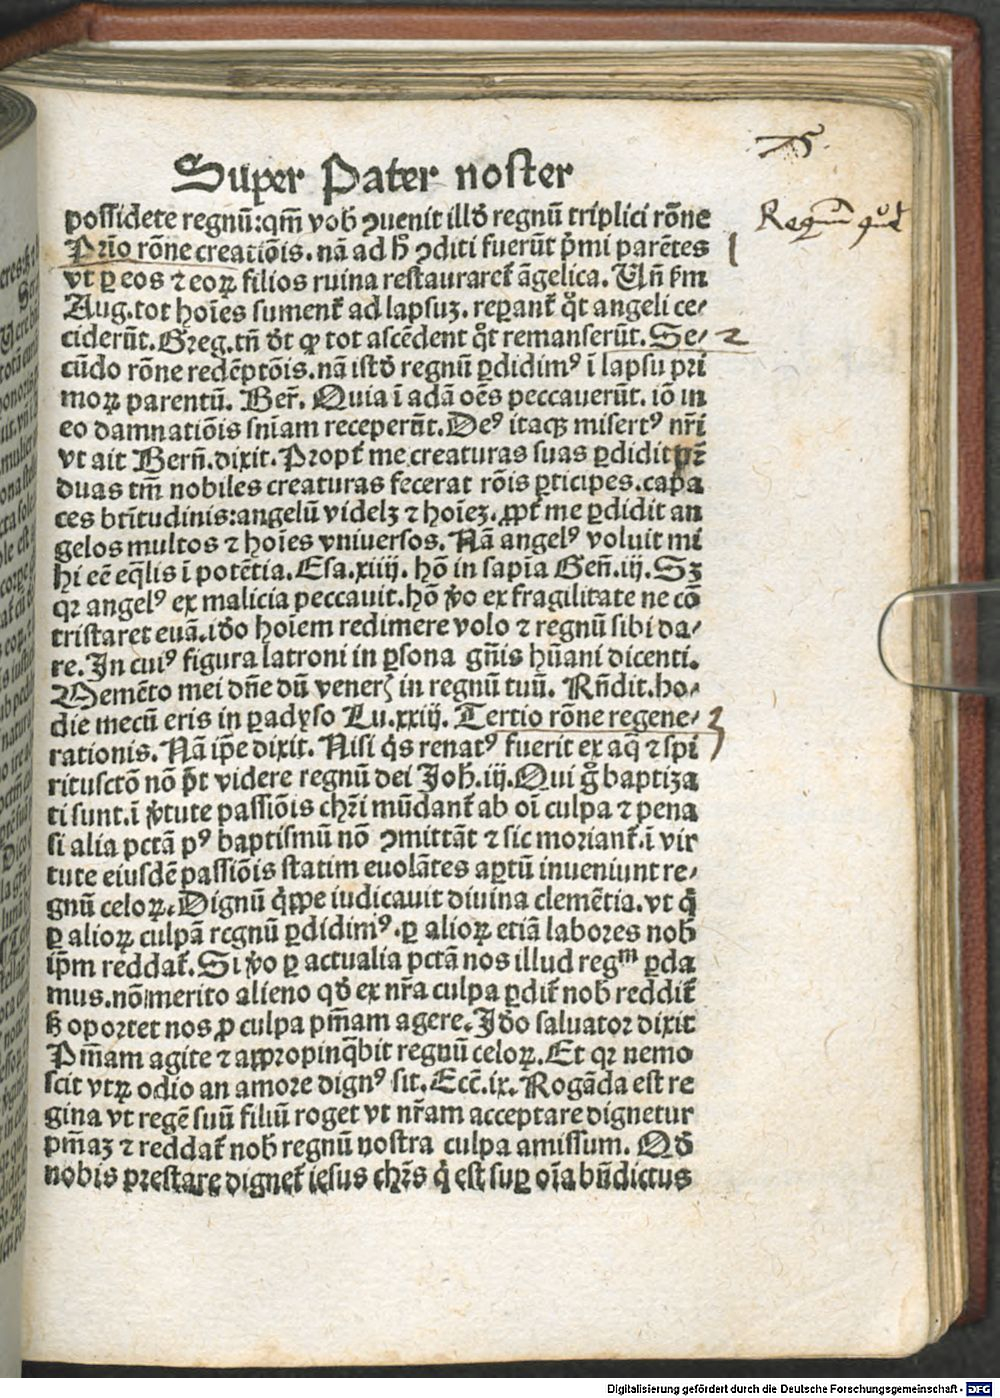 75
Super Pater noster
possidete regnū:qm̄ vob̄ ꝯuenit illď regnū triplici rōne
Regnū
Prīo rōne creatiōis. nā ad h̄ ꝯditi fuerūt p̄mi parētes
1
vt ꝑ eos ⁊ eoꝝ filios ruina restauraret̄ āgelica. Uñ ẜm
Aug. tot hoīes sument̄ ad lapsuꝫ. reparant̄ qͦt angeli ce⸗
ciderūt. Greg. tñ ďt ꝙ tot ascēdent qͦt remanserūt. Se⸗
2
cūdo rōne redēptōis. nā istď regnū ꝑdidimꝰ ī lapsu pri
moꝝ parentū. Ber̄. Quia ī adā oēs peccauerūt. iō in
eo damnatiōis snīam receperūt. Deꝰ itaqꝫ misertꝰ nr̄i
vt ait Bern̄. dixit. Propt̄ me creaturas suas ꝑdidit pr̄
duas tm̄ nobiles creaturas fecerat rōis ꝑticipes. capa
ces btītudinis: angelū videlꝫ ⁊ hoīeꝫ. ꝓpt̄ me ꝑdidit an
gelos multos ⁊ hoīes vniuersos. Nā angelꝰ voluit mi
hi eē eq̄lis ī potētia. Esa. xiiij. hō in sapīa Gen̄. iij. Sꝫ
qꝛ angelꝰ ex malicia peccauit. hō ꝟo ex fragilitate ne cō
tristaret euā. iďo hoīem redimere volo ⁊ regnū sibi da⸗
re. In cuiꝰ figura latroni in ꝑsona gn̄is hūani dicenti.
Memēto mei dn̄e dū venerꝭ in regnū tuū. Rn̄dit. ho⸗
die mecū eris in paradyso Lu. xxiij. Tertio rōne regene⸗
3
rationis. Nā ip̄e dixit. Nisi q̇s renatꝰ fuerit ex aq̄ ⁊ spi
rituscтō nō p̄t videre regnū dei Joh̄. iij. Qui g̊ baptiza
ti sunt. ī ꝟtute passiōis chr̄i mūdant̄ ab oī culpa ⁊ pena
si alia pctā pꝰ baptismū nō ꝯmittāt ⁊ sic moriant̄. ī vir
tute eiusdē passiōis statim euolātes aꝑtū inueniunt re⸗
gnū celoꝝ. Dignū q̇ppe iudicauit diuina clemētia. vt q̇
ꝑ alioꝝ culpā regnū ꝑdidimꝰ. ꝑ alioꝝ etiā labores nob̄
ip̄m reddat̄. Si ꝟo ꝑ actualia pctā nos illud regᵐ ꝑda
mus. nō merito alieno qď ex nr̄a culpa ꝑdit̄ nob̄ reddit̄
ẜ oportet nos ꝓ culpa pn̄iam agere. Iďo saluator dixit
Pn̄iam agite ⁊ appropinq̄bit regnū celoꝝ. Et qꝛ nemo
scit vtꝝ odio an amore dignꝰ sit. Ecc̄. ix. Rogāda est re
gina vt regē suū filiū roget vt nr̄am acceptare dignetur
pn̄iaꝫ ⁊ reddat̄ nob̄ regnū nostra culpa amissum. Qď
nobis prestare dignet̄ iesus chr̄s q̇ est suꝑ oīa bn̄dictus
Digitalisierung gefördert durch die Deutsche Forschungsgemeinschaft - DFG